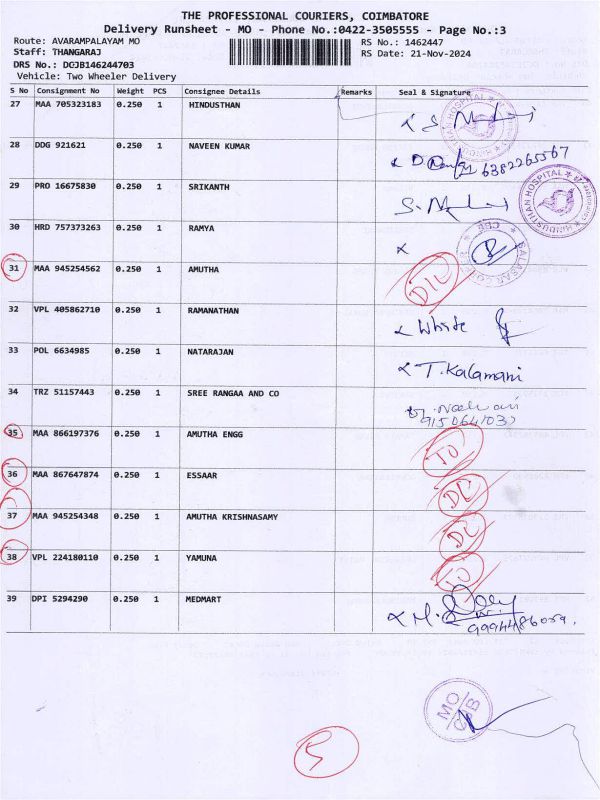 THE PROFESSIONAL COURIERS, COIMBATORE
Delivery Runsheet - MO - Phone No.:0422-3505555 - Page No.:3
Route: AVARAMPALAYAM MO RS No.: 1462447
Staff: THANGARAJ RS Date: 21-Nov-2024
DRS No.: DCJB146244703
Vehicle: Two Wheeler Delivery
S No Consignment No Weight PCS Consignee Details Remarks Seal & Signature
27 MAA 705323183 0.250 1 HINDUSTHAN
28 DDG 921621 0.250 1 NAVEEN KUMAR 6382265567
29 PRO 16675830 0.250 1 SRIKANTH HINDUSTHAN HOSPITAL
30 HRD 757373263 0.250 1 RAMYA
31 MAA 945254562 0.250 1 AMUTHA DL
32 VPL 405862710 0.250 1 RAMANATHAN White
33 POL 6634985 0.250 1 NATARAJAN T. Kalamani
34 TRZ 51157443 0.250 1 SREE RANGAA AND CO
35 MAA 866197376 0.250 1 AMUTHA ENGG TO
36 MAA 867647874 0.250 1 ESSAAR DL
37 MAA 945254348 0.250 1 AMUTHA KRISHNASAMY DL
38 VPL 224180110 0.250 1 YAMUNA TO
39 DPI 5294290 0.250 1 MEDMART
MO
5